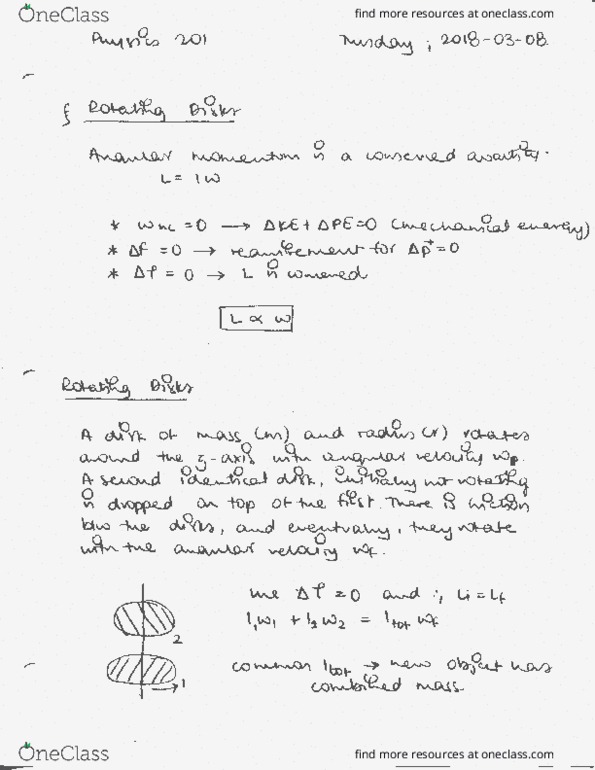 OneClass
find more resources at oneclass.com
Physics 201
Tuesday ; 2018-03-08
§ Rotating Disks
Angular momentum is a conserved quantity.
L = Iω
* Wnc = 0 → ΔKE + ΔPE = 0 (mechanical energy)
* Δf = 0 → requirement for Δp⃗ = 0
* Δτ = 0 → L is conserved
L ∝ ω
Rotating Disks
A disk of mass (m) and radius (r) rotates
around the z-axis with angular velocity
A second identical disk, initially not rotating
is dropped on top of the first. There is friction
btw the disks, and eventually, they rotate
with the angular velocity ωf.
2
1
Δτ = 0 and ∴ Li = Lf
I₁ω₁ + I₂ω₂ = Itot ωf
common Itot → new object has
combined mass.
OneClass
find more resources at oneclass.com